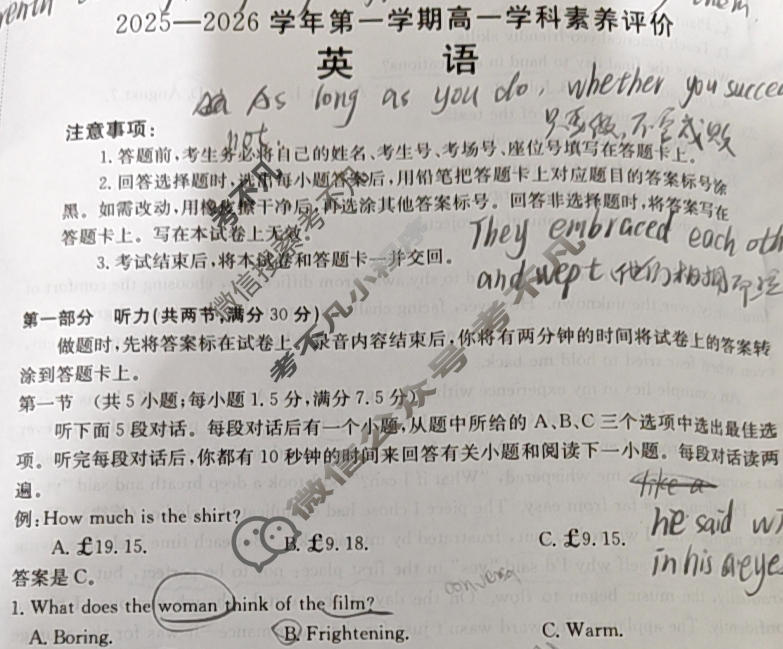 2025—2026学年第一学期高一学科素养评价
英 语
As long as you do, whether you succe
not.
只要做,不管成败
注意事项:
1.答题前,考生务必将自己的姓名、考生号、考场号、座位号填写在答题卡上。
2.回答选择题时,选出每小题答案后,用铅笔把答题卡上对应题目的答案标号涂
黑。如需改动,用橡皮擦干净后,再选涂其他答案标号。回答非选择题时,将答案写在
答题卡上。写在本试卷上无效。
They embraced each oth
3.考试结束后,将本试卷和答题卡一并交回。
and wept
第一部分 听力(共两节,满分30分)
做题时,先将答案标在试卷上。录音内容结束后,你将有两分钟的时间将试卷上的答案转
涂到答题卡上。
第一节 (共5小题;每小题1.5分,满分7.5分)
听下面5段对话。每段对话后有一个小题,从题中所给的A、B、C三个选项中选出最佳选
项。听完每段对话后,你都有10秒钟的时间来回答有关小题和阅读下一小题。每段对话读两
遍。
like a
例:How much is the shirt?
he said w
A. £19.15. B. £9.18. C. £9.15.
in his eye
答案是C。
1. What does the woman think of the film?
A. Boring. B. Frightening. C. Warm.
微信搜索考不凡
考不凡小程序
微信公众号考不凡